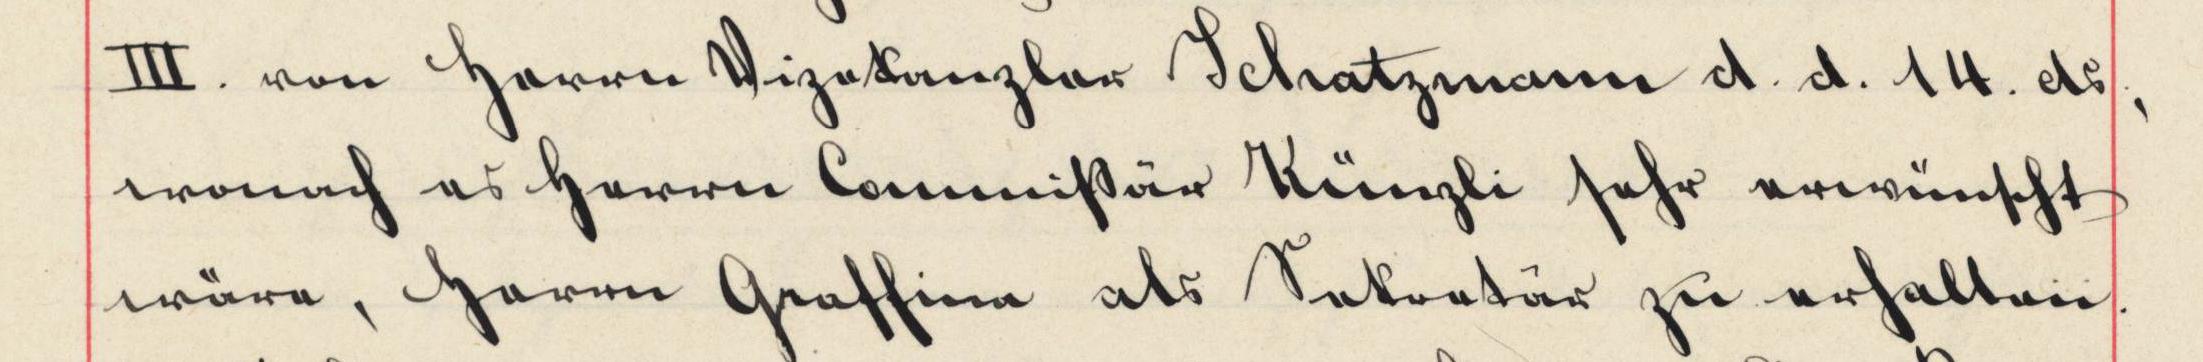 III. von Herrn Vizekanzler Schatzmann d. d. 14. ds.,
wonach es Herrn Commißär Künzli sehr erwünscht
wäre, Herrn Graffina als Sekretär zu erhalten.